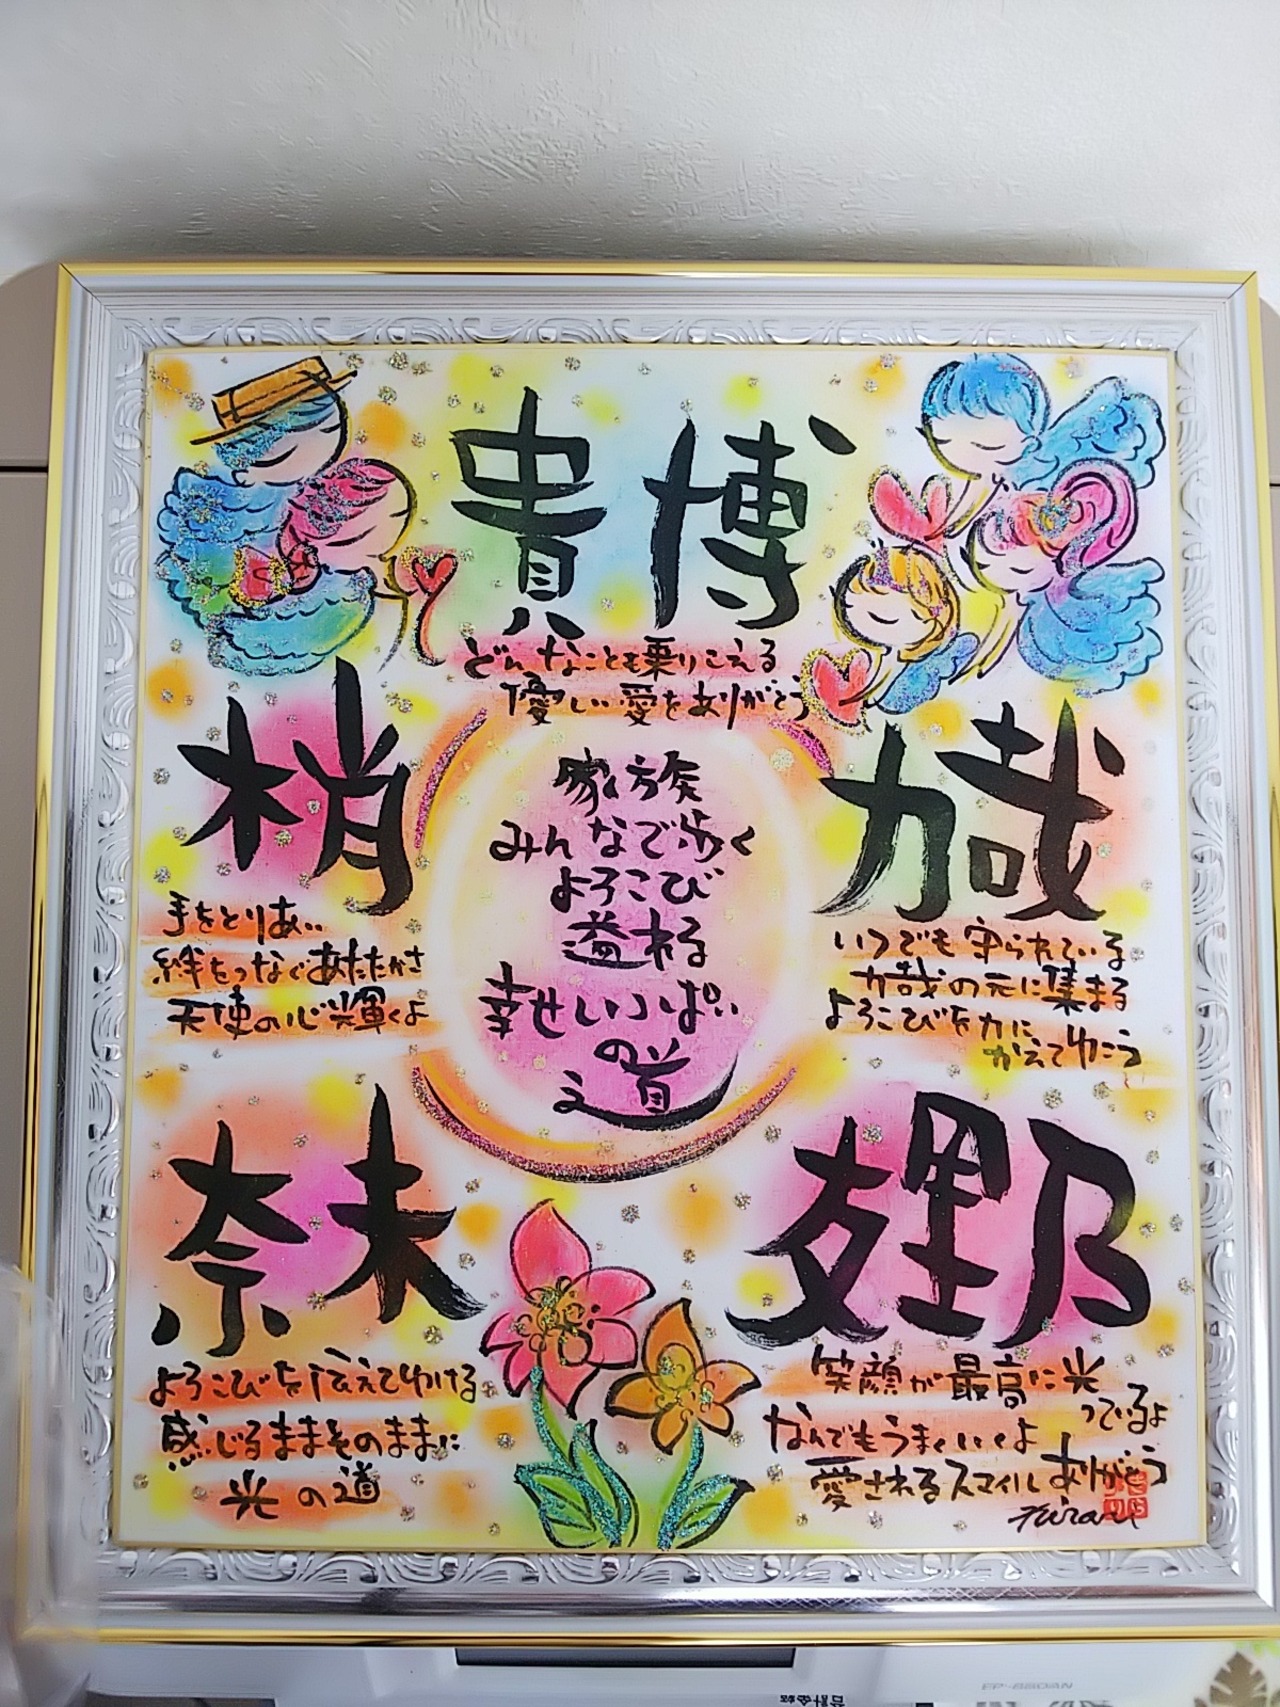 貴博
どんなことも乗りこえる
優しい愛をありがとう
梢
手をとりあい
絆をつなぐあたたかさ
天使の心輝くよ
家族
みんなで歩く
よろこび
溢れる
幸せいっぱい
の
道
力哉
いつでも守られている
力哉の元に集まる
よろこびを力に
かえてゆこう
奈未
よろこびを伝えてゆける
感じるままそのままに
光の道
友理乃
笑顔が最高に光
ってるよ
なんでもうまくいくよ
愛されるスマイルありがとう
EP-880AN